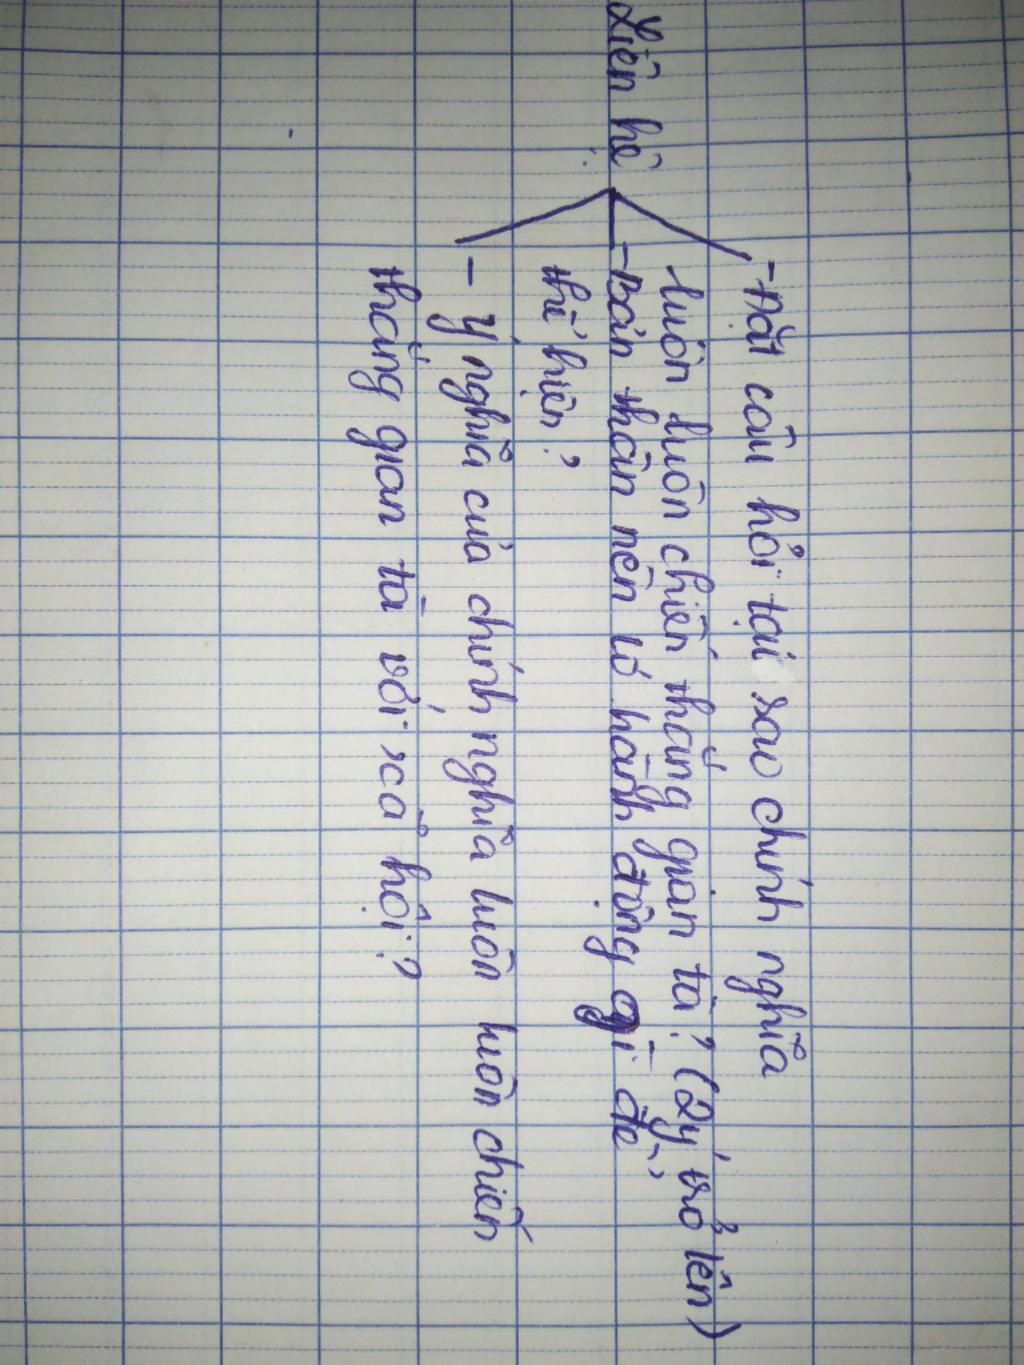 Liên hệ
- Đặt câu hỏi tại sao chính nghĩa
luôn luôn chiến thắng gian tà? (2 ý trở lên)
- Bản thân nên có hành động gì để
thể hiện?
- Ý nghĩa của chính nghĩa luôn luôn chiến
thắng gian tà với xã hội?